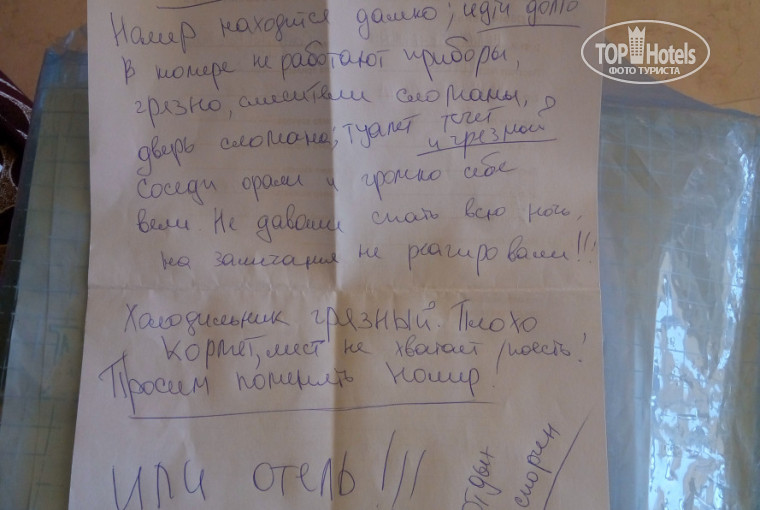 Номер находится далеко, идти долго
В номере не работают приборы,
грязно, смесители сломаны,
дверь сломана, туалет течёт
и грязный
Соседи орали и громко себе
вели. Не давали спать всю ночь,
на замичания не реагировали!!!
Холодильник грязный. Плохо
кормят, мест не хватает /поесть!
Просим поменять номер!
ИЛИ ОТЕЛЬ!!!
TOP Hotels
ФОТО ТУРИСТА